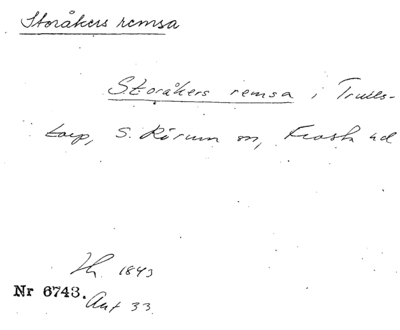 Storåkers remsa
Storåkers remsa i Trulls-
torp, S. Rörum sn, Frosta hd
1843
Nr 6743. Akt 33